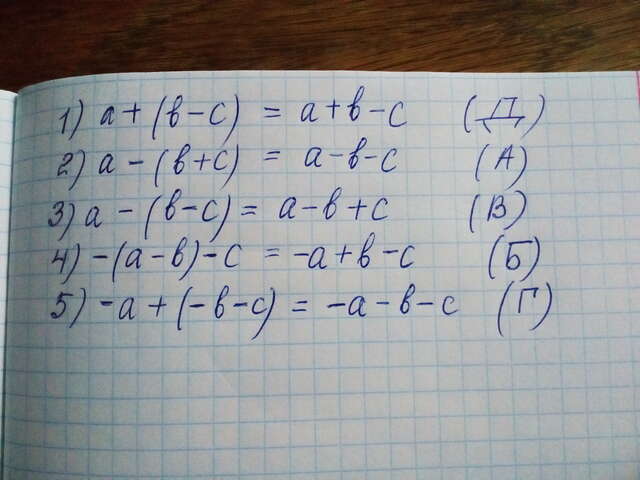 1) a + (в – c) = a + в – c (Д)
2) a – (в + c) = a – в – c (А)
3) a – (в – c) = a – в + c (В)
4) –(a – в) – c = –a + в – c (Б)
5) –a + (–в – c) = –a – в – c (Г)